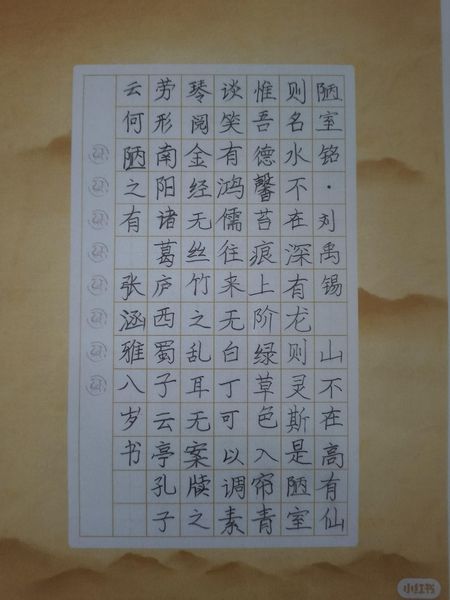 陋室铭·刘禹锡 山不在高有仙
则名水不在深有龙则灵斯是陋室
惟吾德馨苔痕上阶绿草色入帘青
谈笑有鸿儒往来无白丁可以调素
琴阅金经无丝竹之乱耳无案牍之
劳形南阳诸葛庐西蜀子云亭孔子
云何陋之有 张涵雅八岁书
小红书